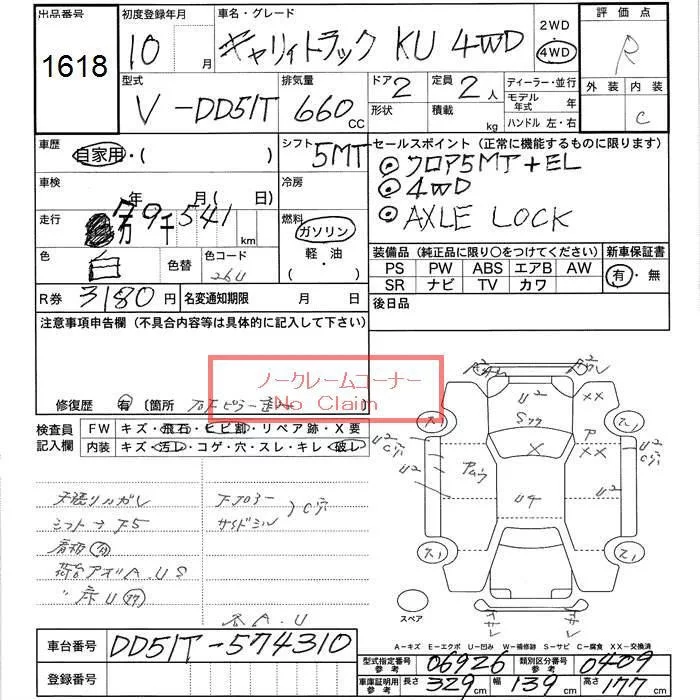 出品番号
1618
初度登録年月
10 月
車名・グレード
キャリィトラック KU 4WD
2WD
・
4WD
評価点
R
外装 内装
C
型式
V-DD51T
排気量
660 CC
ドア 2
形状
定員 2 人
積載 kg
ディーラー・並行
モデル年式 年
ハンドル 左・右
車歴
自家用・( )
シフト 5MT
車検
年 月( 日)
冷房
走行
万 79 千 541 km
燃料
ガソリン
・
軽・油
( )
色
白
色替
色コード
26U
R券 3180 円
名変通知期限 月 日
セールスポイント(正常に機能するものに限ります)
◎フロア5MT+EL
◎4WD
◎AXLE LOCK
装備品(純正品に限り○をつけてください)
PS PW ABS エアB AW
SR ナビ TV カワ
新車保証書
有・無
後日品
注意事項申告欄(不具合内容等は具体的に記入して下さい)
ノークレームコーナー
No Claim
修復歴 有 〔箇所
検査員記入欄
FW キズ・飛石・ヒビ割・リペア跡・X要
内装 キズ・汚レ・コゲ・穴・スレ・キレ・破レ
シフト→F5
サイドシル
C穴
荷台アオリA.US
A.U
U2
XX
Sクサ
P
XX
ス1
ス1
U2
C穴
U2
X
U2
U2
C穴
U4
ス1
ス1
サビ
サビ
スペア
A-キズ E-エクボ U-凹み W-補修跡 S-サビ C-腐食 XX-交換済
車台番号 DD51T-574310
登録番号
型式指定番号 参考 06926
類別区分番号 参考 0409
車庫証明用 参考 長さ 329 cm 幅 139 cm 高さ 177 cm